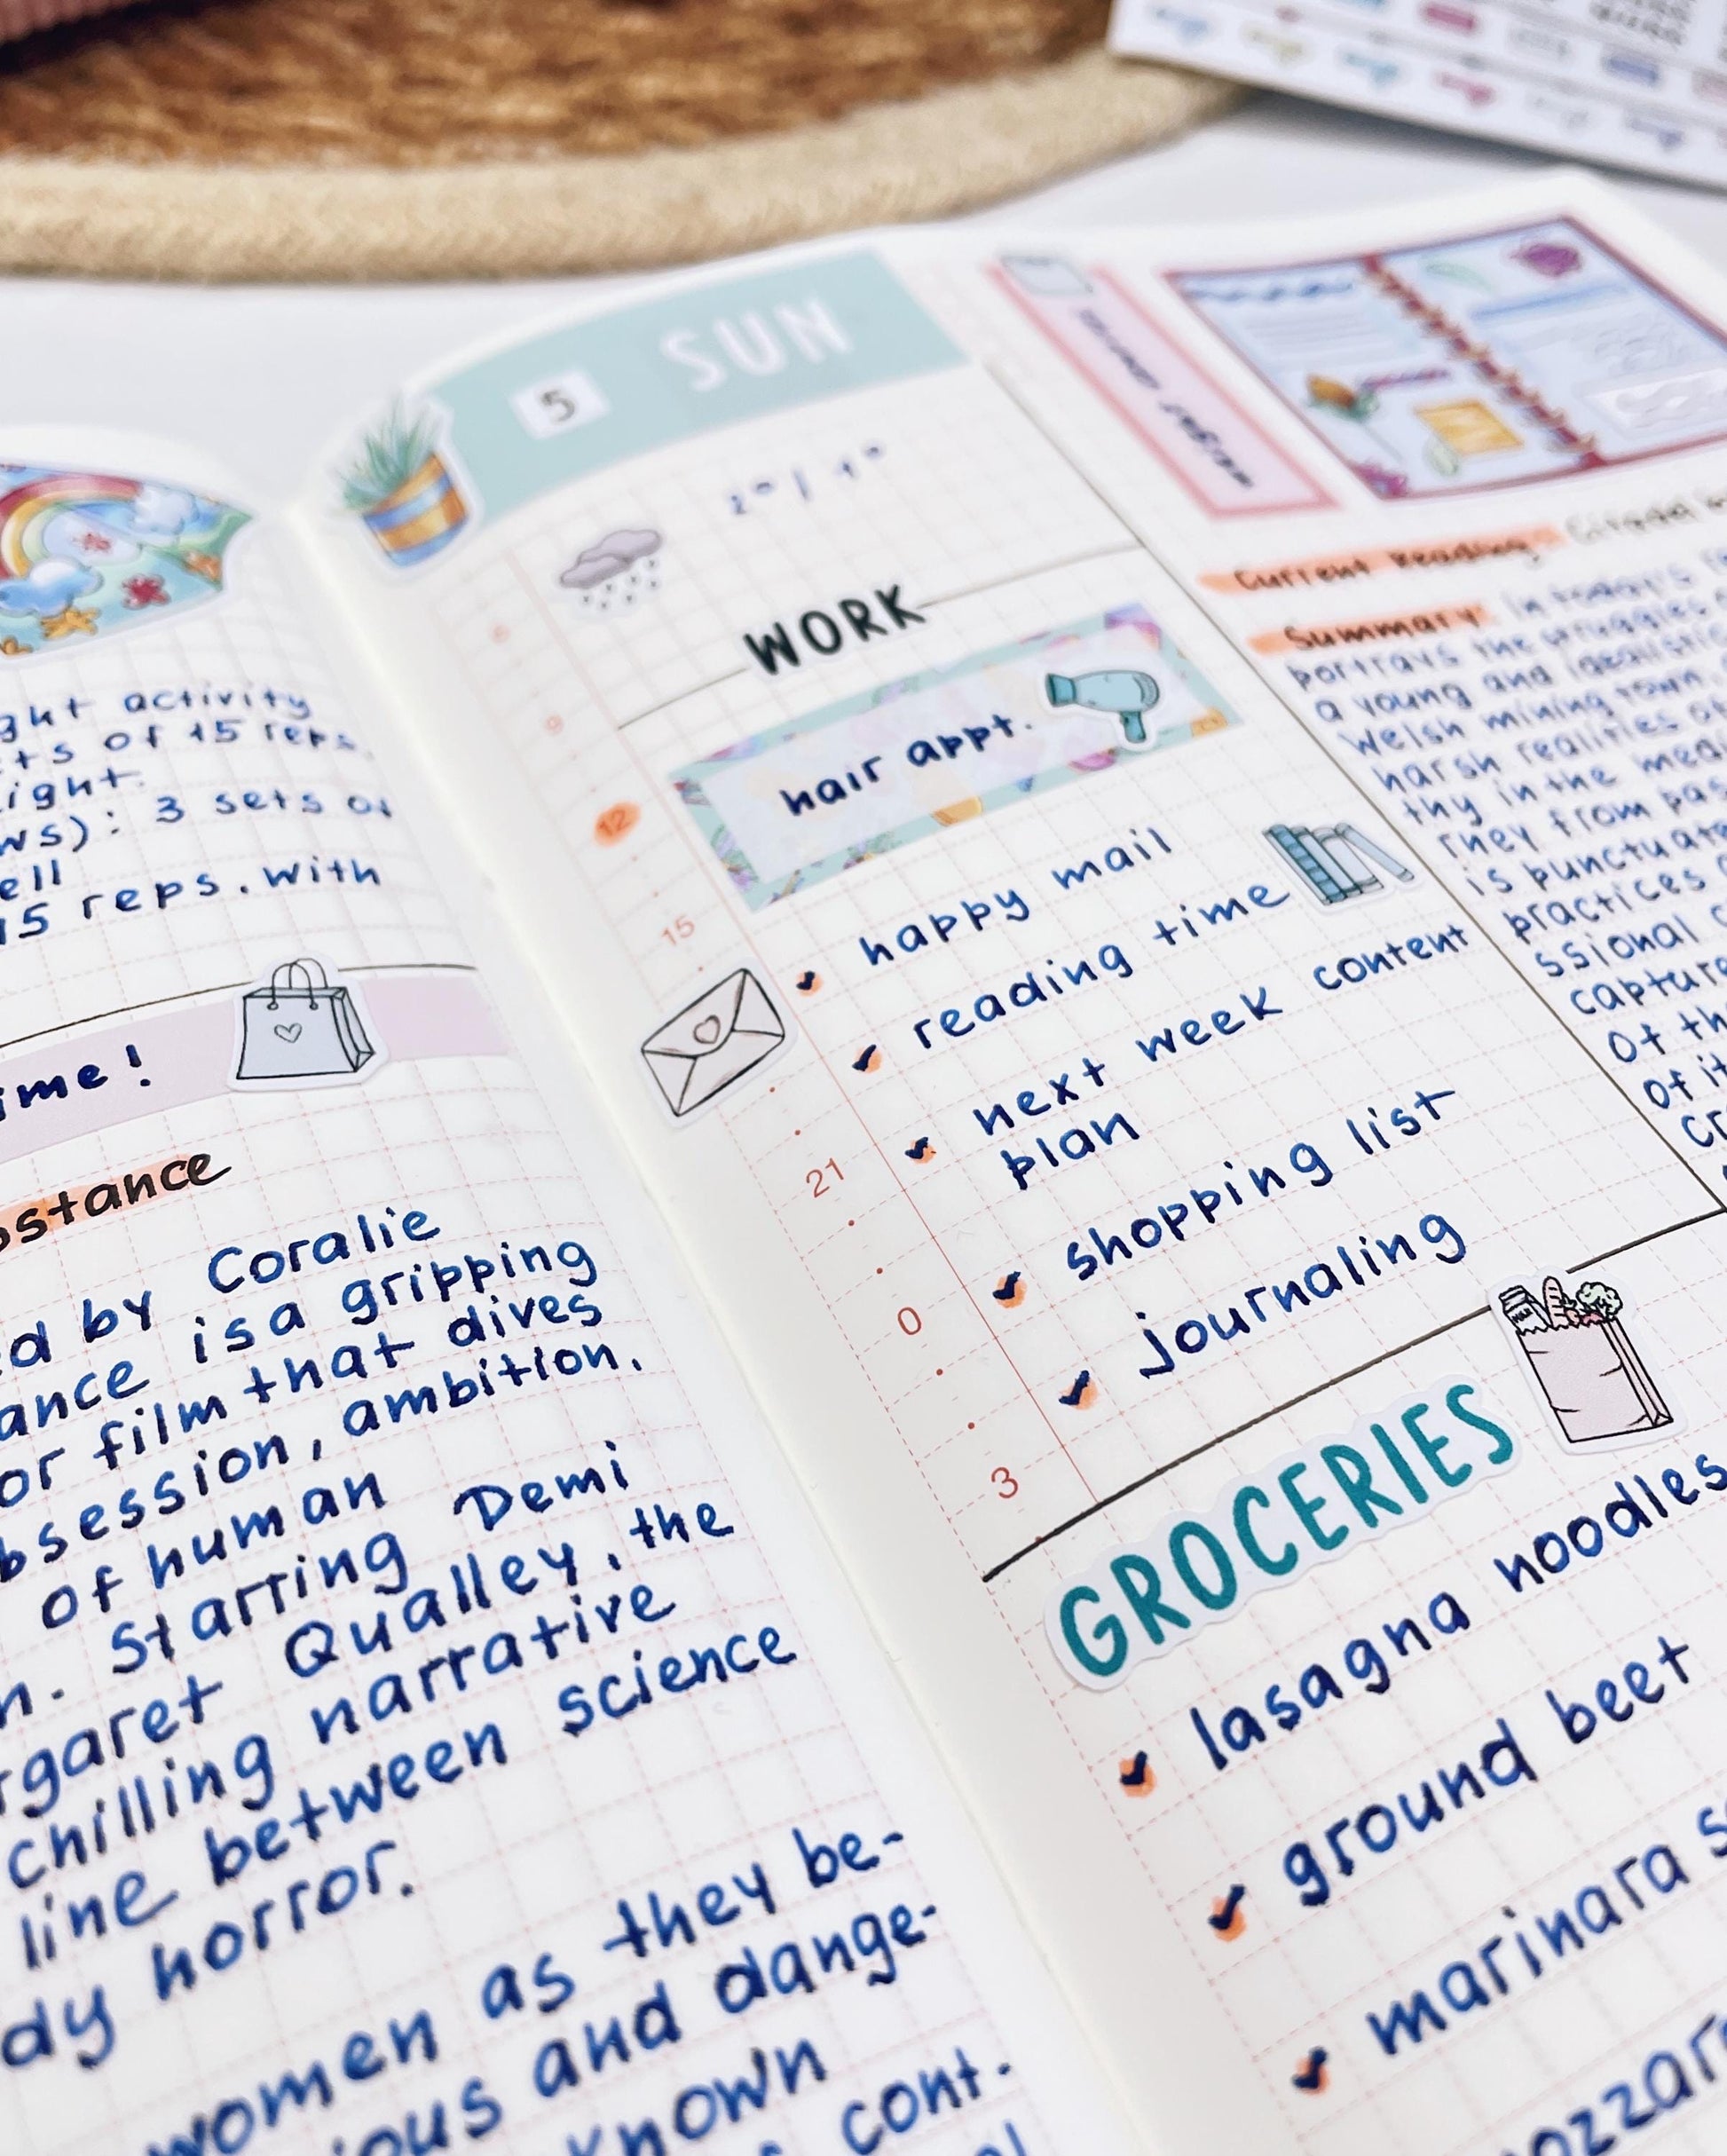 ght activity
ts of 15 reps.
ight.
ws): 3 sets of
ell
15 reps. with
ime!
bstance
ed by Coralie
ance is a gripping
or film that dives
bsession, ambition,
of human
n. Starring Demi
rgaret Qualley, the
chilling narrative
line between science
dy horror.
women as they be-
ious and dange-
known
cont.
5 SUN
WORK
hair appt.
happy mail
reading time
next week content
plan
shopping list
journaling
9
12
15
21
0
3
GROCERIES
lasagna noodles
ground beef
marinara s
ozzar
Current Reading: Citadel
Summary: In today's
portrays the struggles
a young and idealistic
Welsh mining town.
harsh realities of
thy in the medi
They from pas
is punctuat
practices
ssional c
captur
of th
of it
cr